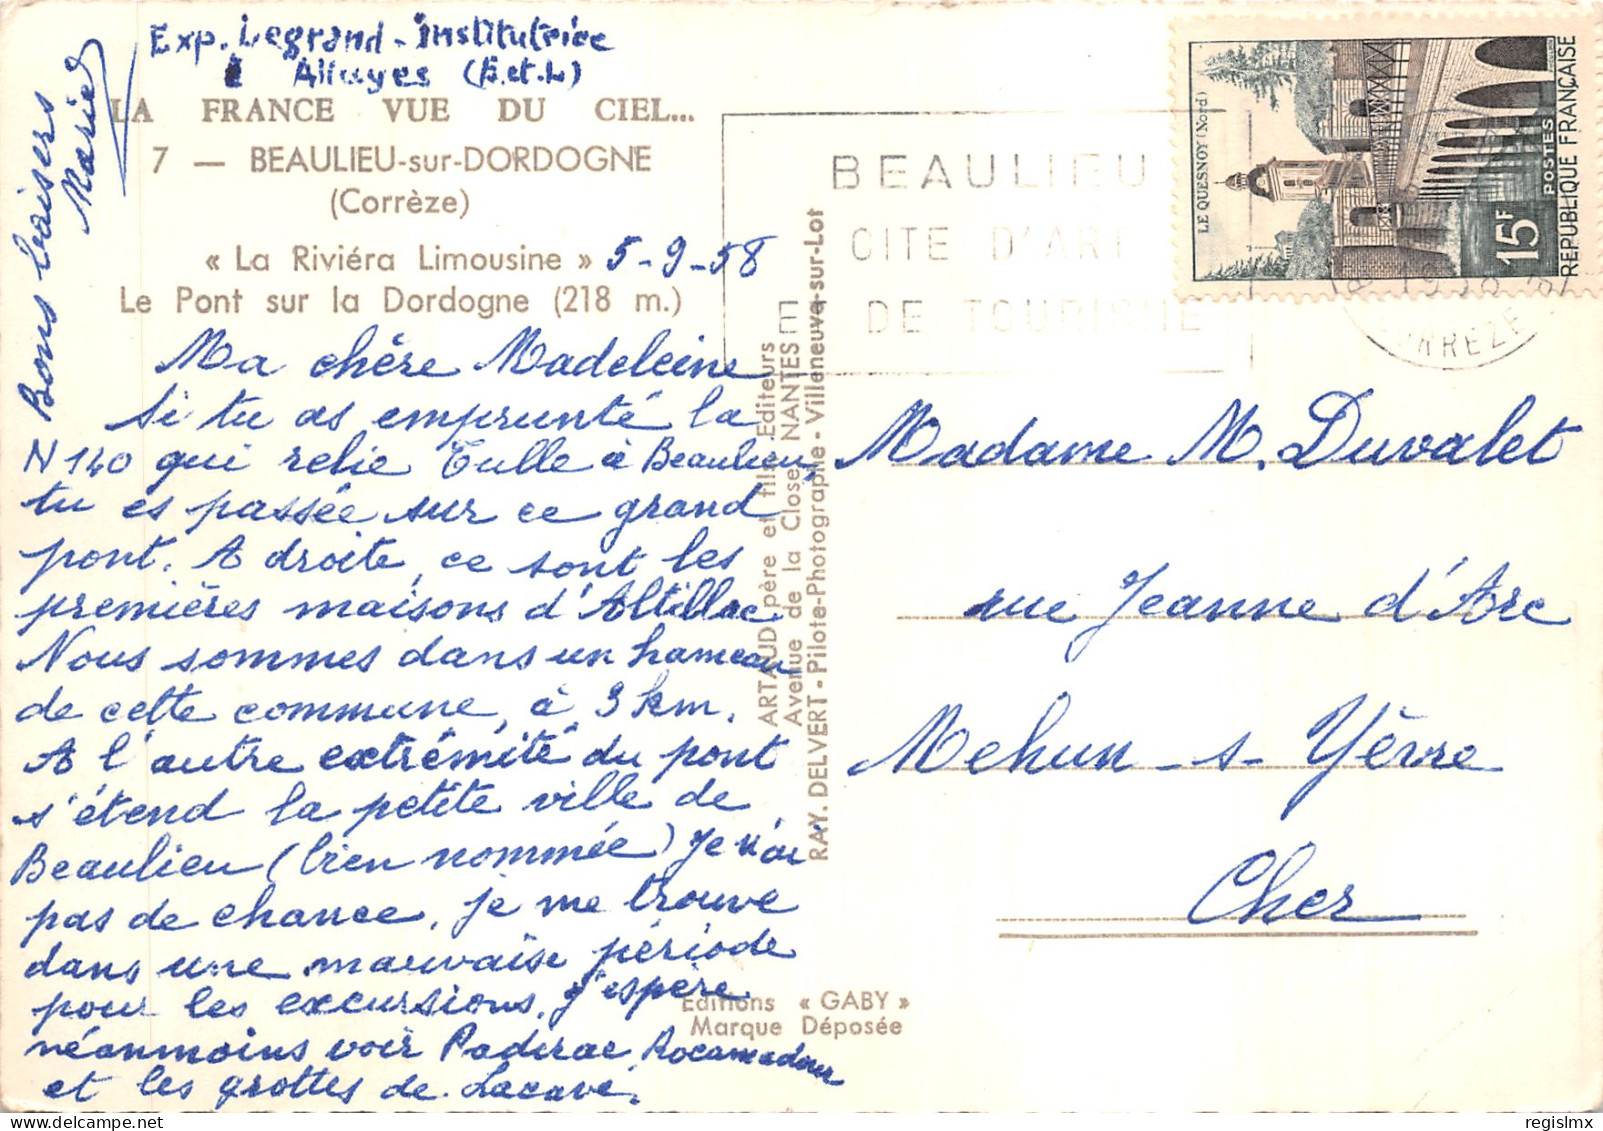 Exp. Legrand - Institutrice
Alluyes (E.et.L)
LA FRANCE VUE DU CIEL...
7 — BEAULIEU-sur-DORDOGNE
(Corrèze)
« La Riviéra Limousine » 5-9-58
Le Pont sur la Dordogne (218 m.)
Ma chère Madeleine
Si tu as emprunté la
N 140 qui relie Tulle à Beaulieu,
tu es passée sur ce grand
pont. A droite, ce sont les
premières maisons d'Altillac
Nous sommes dans un hameau
de cette commune, à 3 km.
A l'autre extrémité du pont
s'étend la petite ville de
Beaulieu (bien nommée) Je n'ai
pas de chance, je me trouve
dans une mauvaise période
pour les excursions. J'espère
néanmoins voir Padirac Rocamadour
et les grottes de Lacave.
Bons baisers
Marie
ARTAUD père et fils Editeurs
Avenue de la Close NANTES
RAY. DELVERT - Pilote-Photographe - Villeneuve-sur-Lot
Editions « GABY »
Marque Déposée
BEAULIEU
CITE D'ART
ET DE TOURISME
CORREZE
LE QUESNOY (Nord)
15F
POSTES
REPUBLIQUE FRANÇAISE
Madame M. Duvalet
rue Jeanne d'Arc
Mehun-s-Yèvre
Cher
regislmx